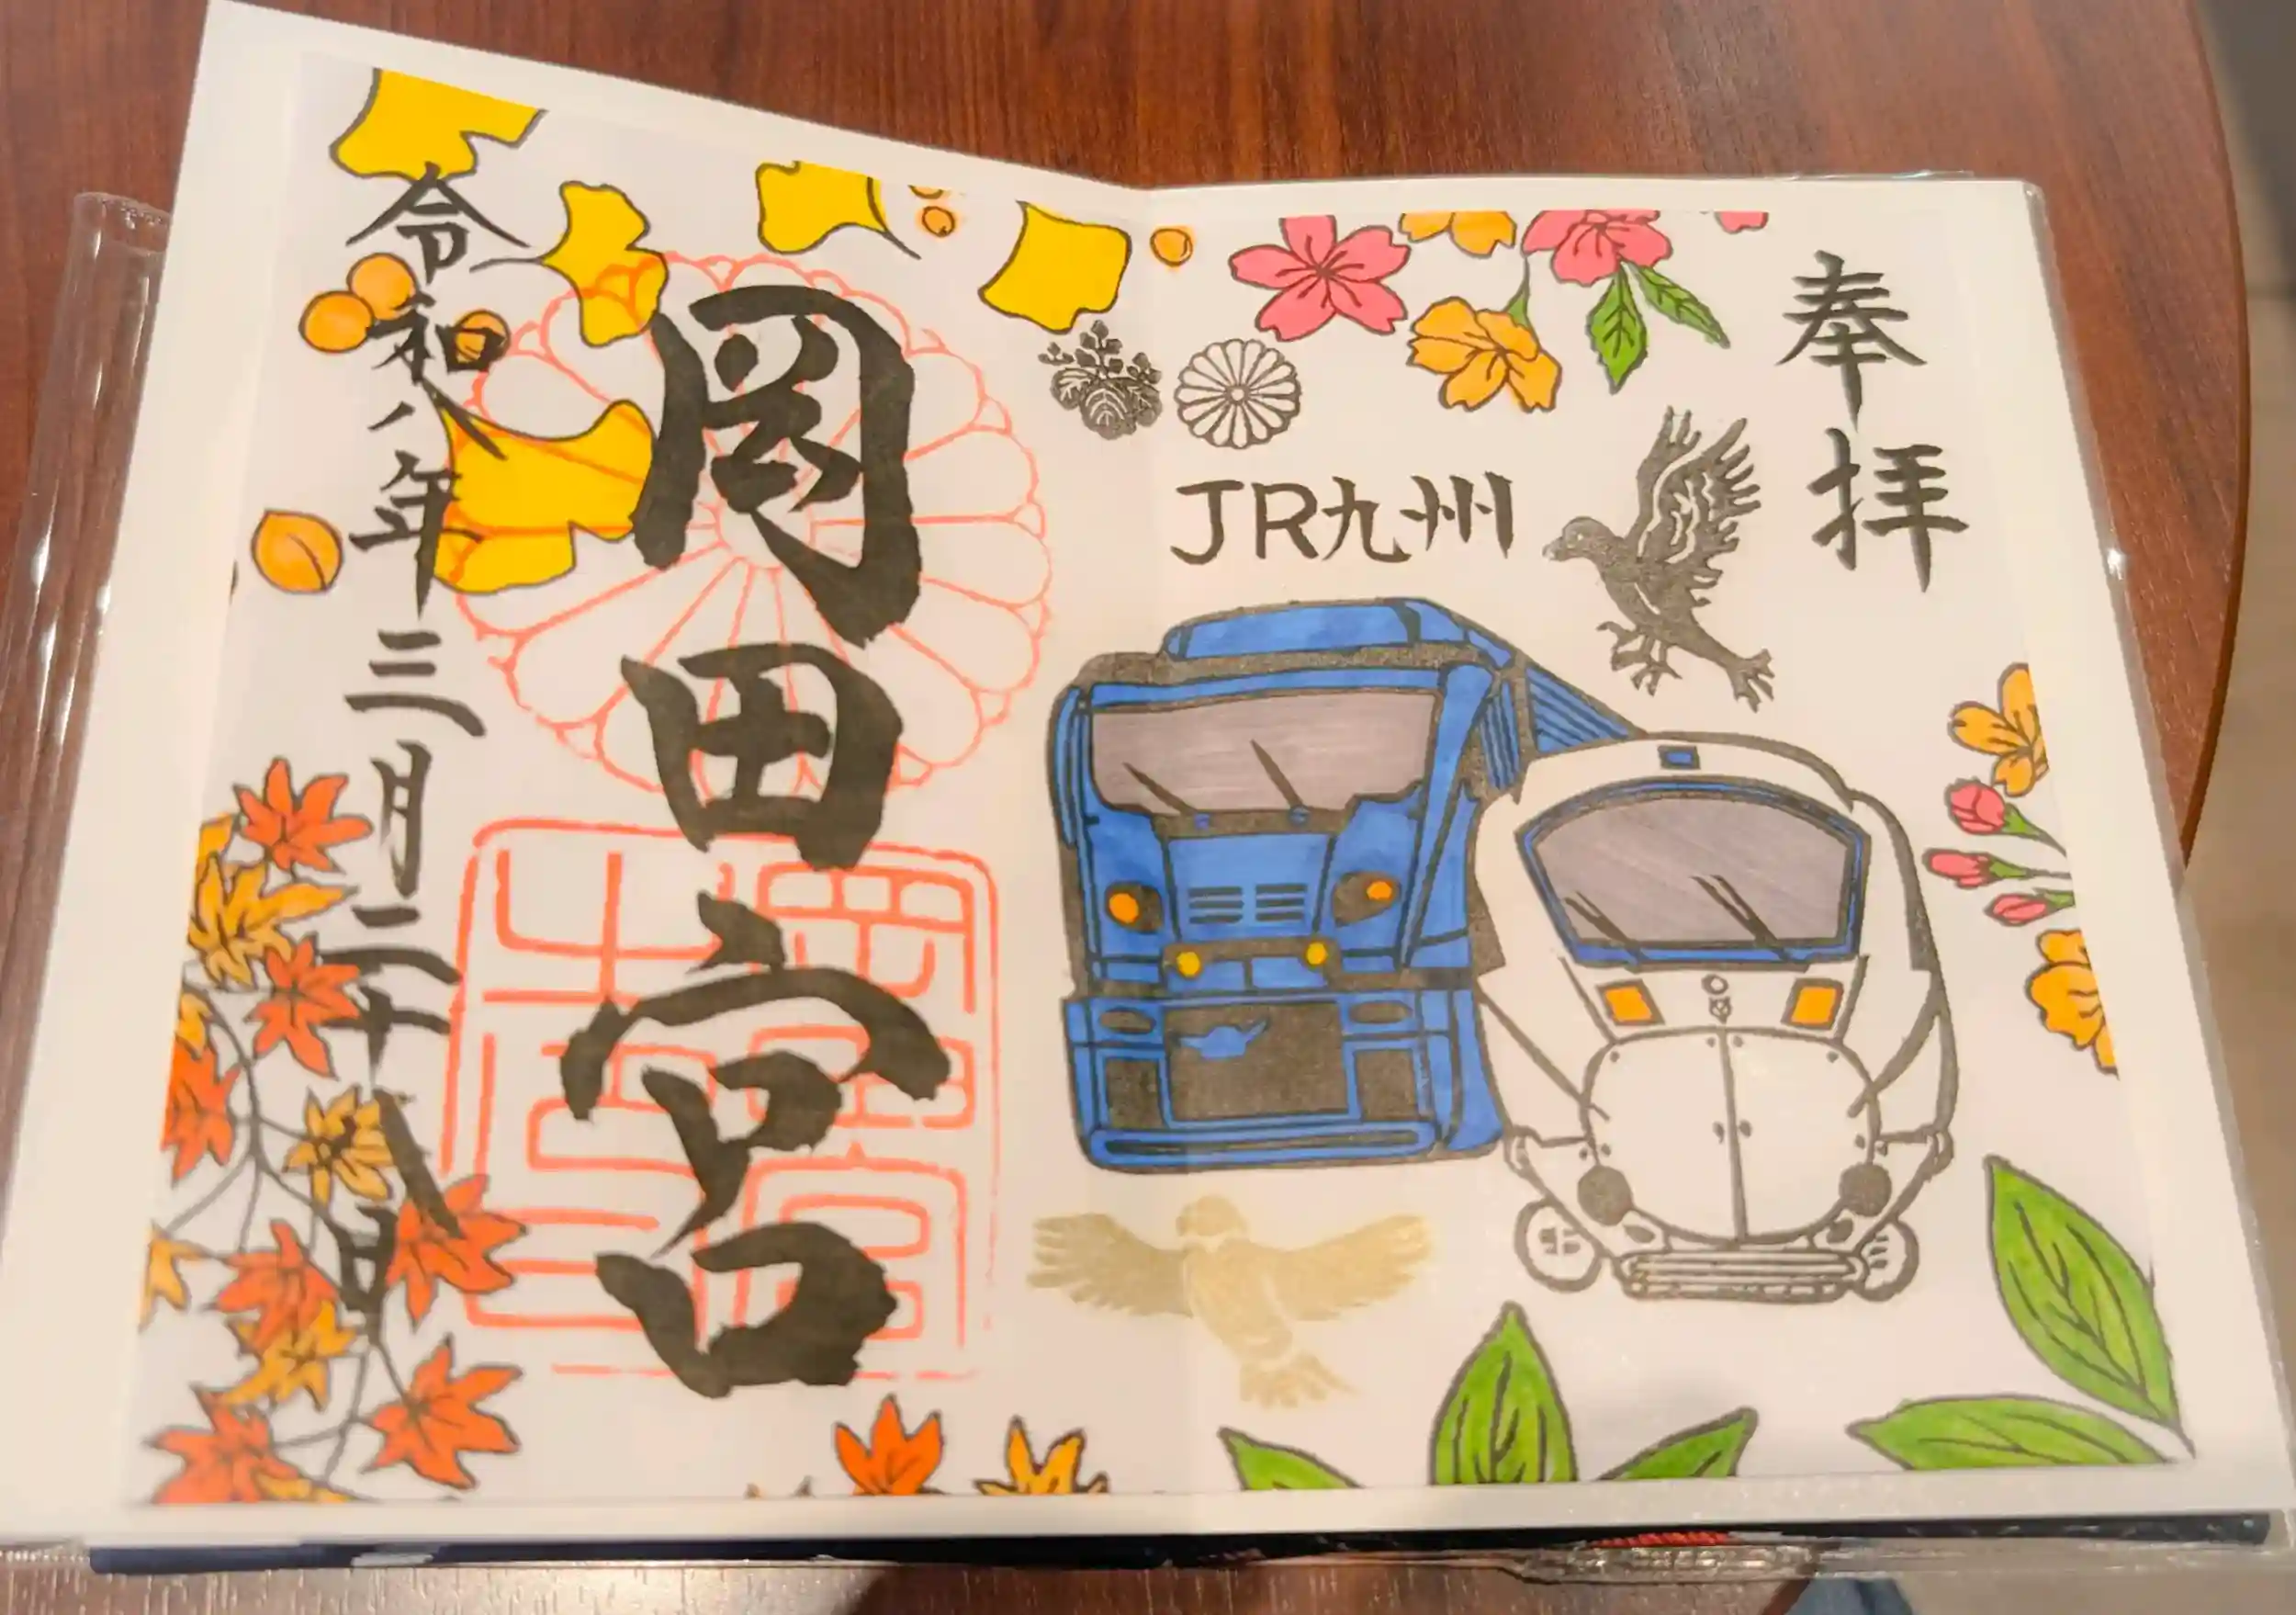 奉拝
JR九州
岡田宮
令和八年三月二十八日